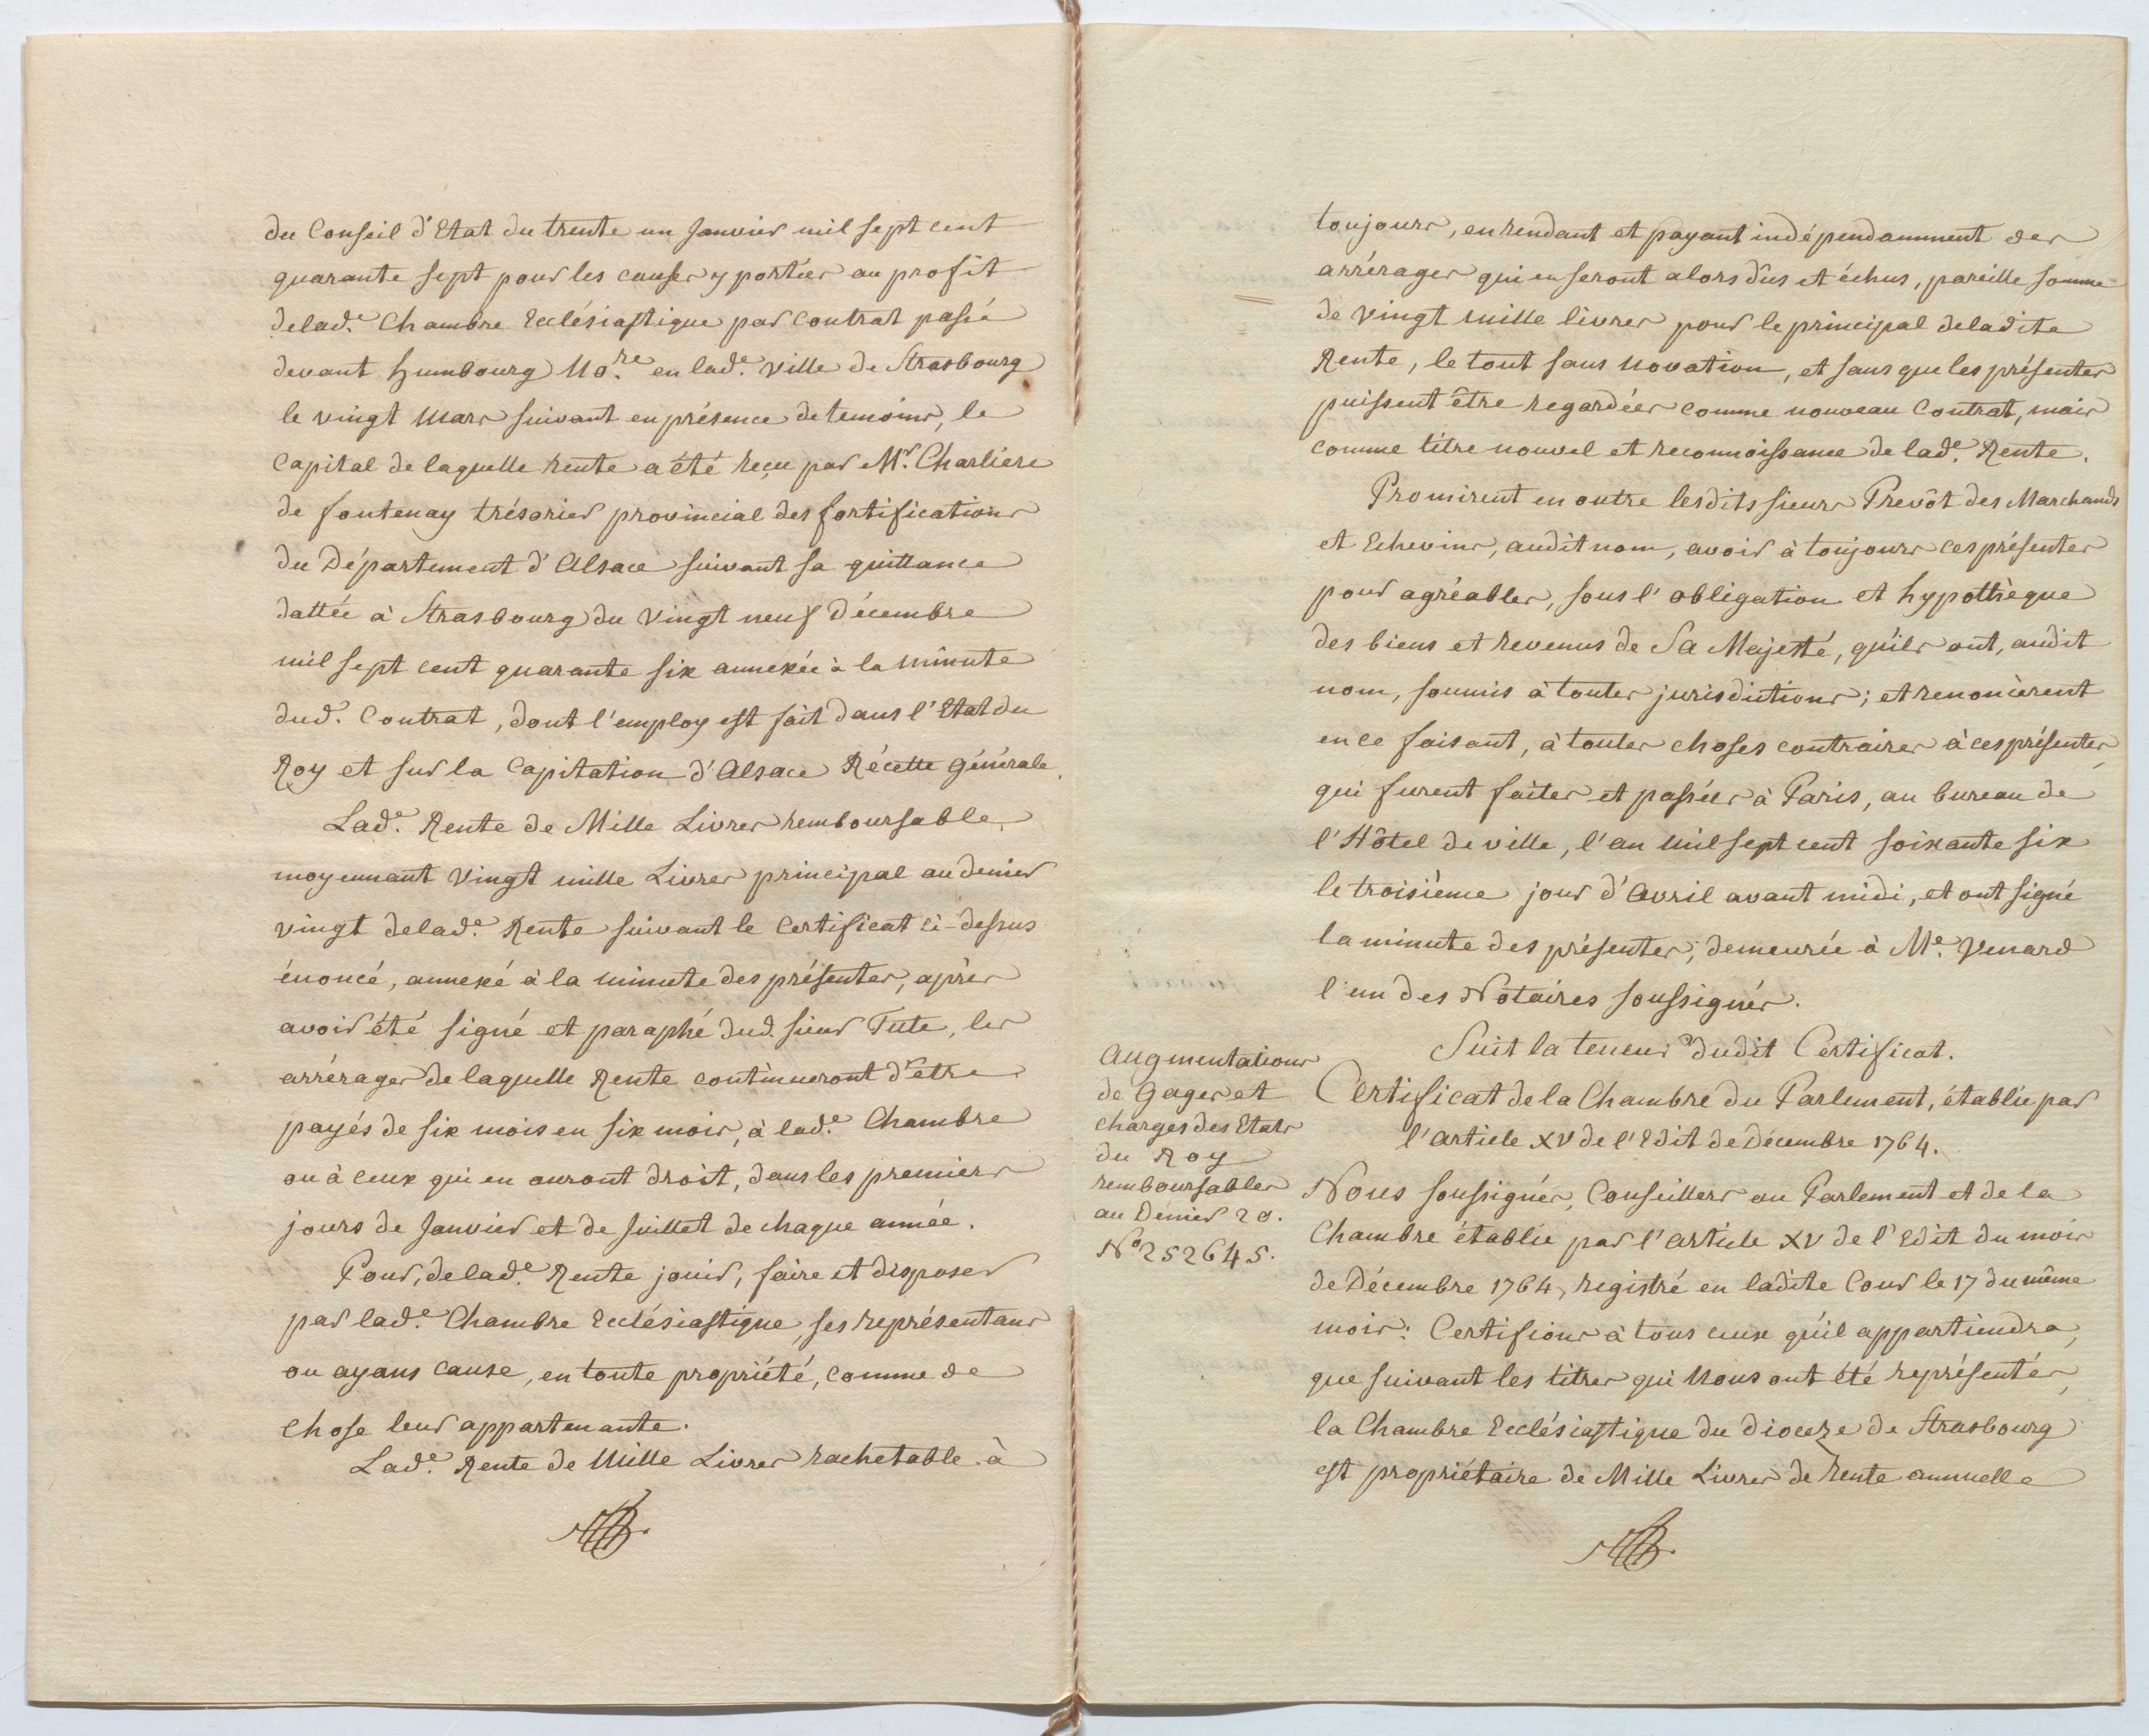 du Conseil d'Etat du trente un Janvier mil sept cent
quarante sept pour les causes y portées au profit
delad.e Chambre Ecclésiastique par Contrat passé
devant humbourg No.re en lad.e ville de Strasbourg
le vingt Mars suivant en présence de temoins, le
Capital de laquelle rente a été reçu par M.r Charliere
de fontenay trésorier provincial des fortifications
du Département d'Alsace suivant sa quittance
dattée à Strasbourg du vingt neuf Décembre
mil sept cent quarante six annexée à la minute
dud. Contrat, dont l'employ est fait dans l'Etat du
Roy et sur la Capitation d'Alsace Récette générale.
Lad.e Rente de Mille Livres remboursable,
moyennant Vingt mille Livres principal au denier
vingt delad.e Rente suivant le Certificat ci-dessus
énoncé, annexé à la minute des présentes, après
avoir été signé et paraphé dud. sieur Tute, les
arrérages de laquelle Rente continueront d'être
payés de six mois en six mois, à lad.e Chambre
ou à ceux qui en auront droit, dans les premiers
jours de Janvier et de Juillet de chaque année.
Pour, delad.e Rente jouir, faire et disposer
par lad.e Chambre Ecclésiastique, ses représentans
ou ayans cause, en toute propriété, comme de
chose leur appartenante.
Lad.e Rente de Mille Livres rachetable à
toujours, en rendant et payant indépendamment des
arrérages qui en seront alors dûs et échus, pareille somme
de vingt mille livres pour le principal deladite
Rente, le tout sans novation, et sans que les présentes
puissent être regardées comme nouveau Contrat, mais
comme titre nouvel et reconnoissance de lad.e Rente.
Promirent en outre lesdits sieurs Prevôt des Marchands
et Echevins, audit nom, avoir à toujours ces présentes
pour agréables, sous l'obligation et hypothèque
des biens et revenus de Sa Majesté, qu'ils ont, audit
nom, soumis à toutes jurisdictions; et renoncèrent
en ce faisant, à toutes choses contraires à ces présentes,
qui furent faites et passées à Paris, au bureau de
l'Hôtel de ville, l'an Mil sept cent soixante six
le troisième jour d'Avril avant midi, et ont signé
la minute des présentes, demeurée à M.e Venard
l'un des Notaires soussignés.
Suit la teneur dudit Certificat.
Augmentations
de Gages et
charges des Etats
du Roy
remboursables
au Denier 20.
No 252645.
Certificat de la Chambre du Parlement, établie par
l'article XV de l'Edit de Décembre 1764.
Nous soussignés, Conseillers au Parlement et de la
Chambre établie par l'article XV de l'Edit du mois
de Décembre 1764, registré en ladite Cour le 17 du même
mois: Certifions à tous ceux qu'il appartiendra,
que suivant les titres qui Nous ont été représentés,
la Chambre Ecclésiastique du Dioceze de Strasbourg
est propriétaire de Mille Livres de Rente annuelle